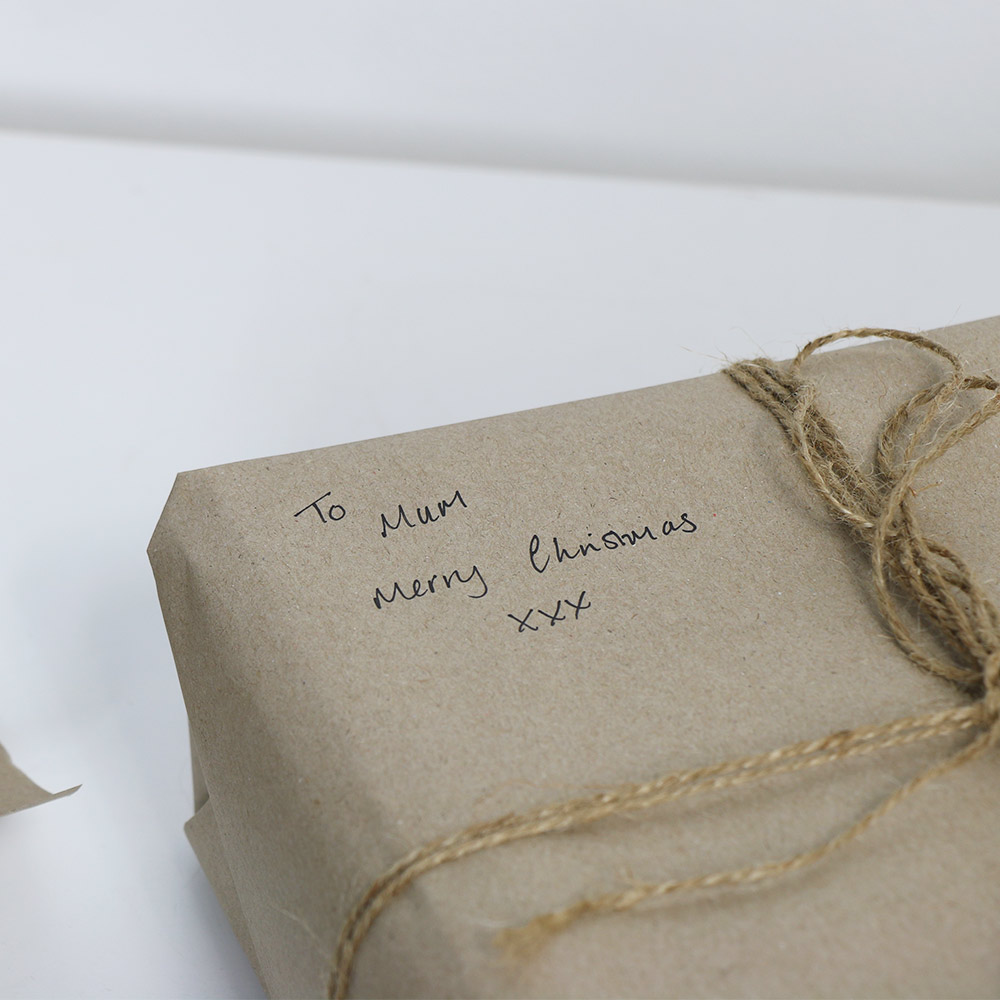 To Mum
Merry Christmas
xxx